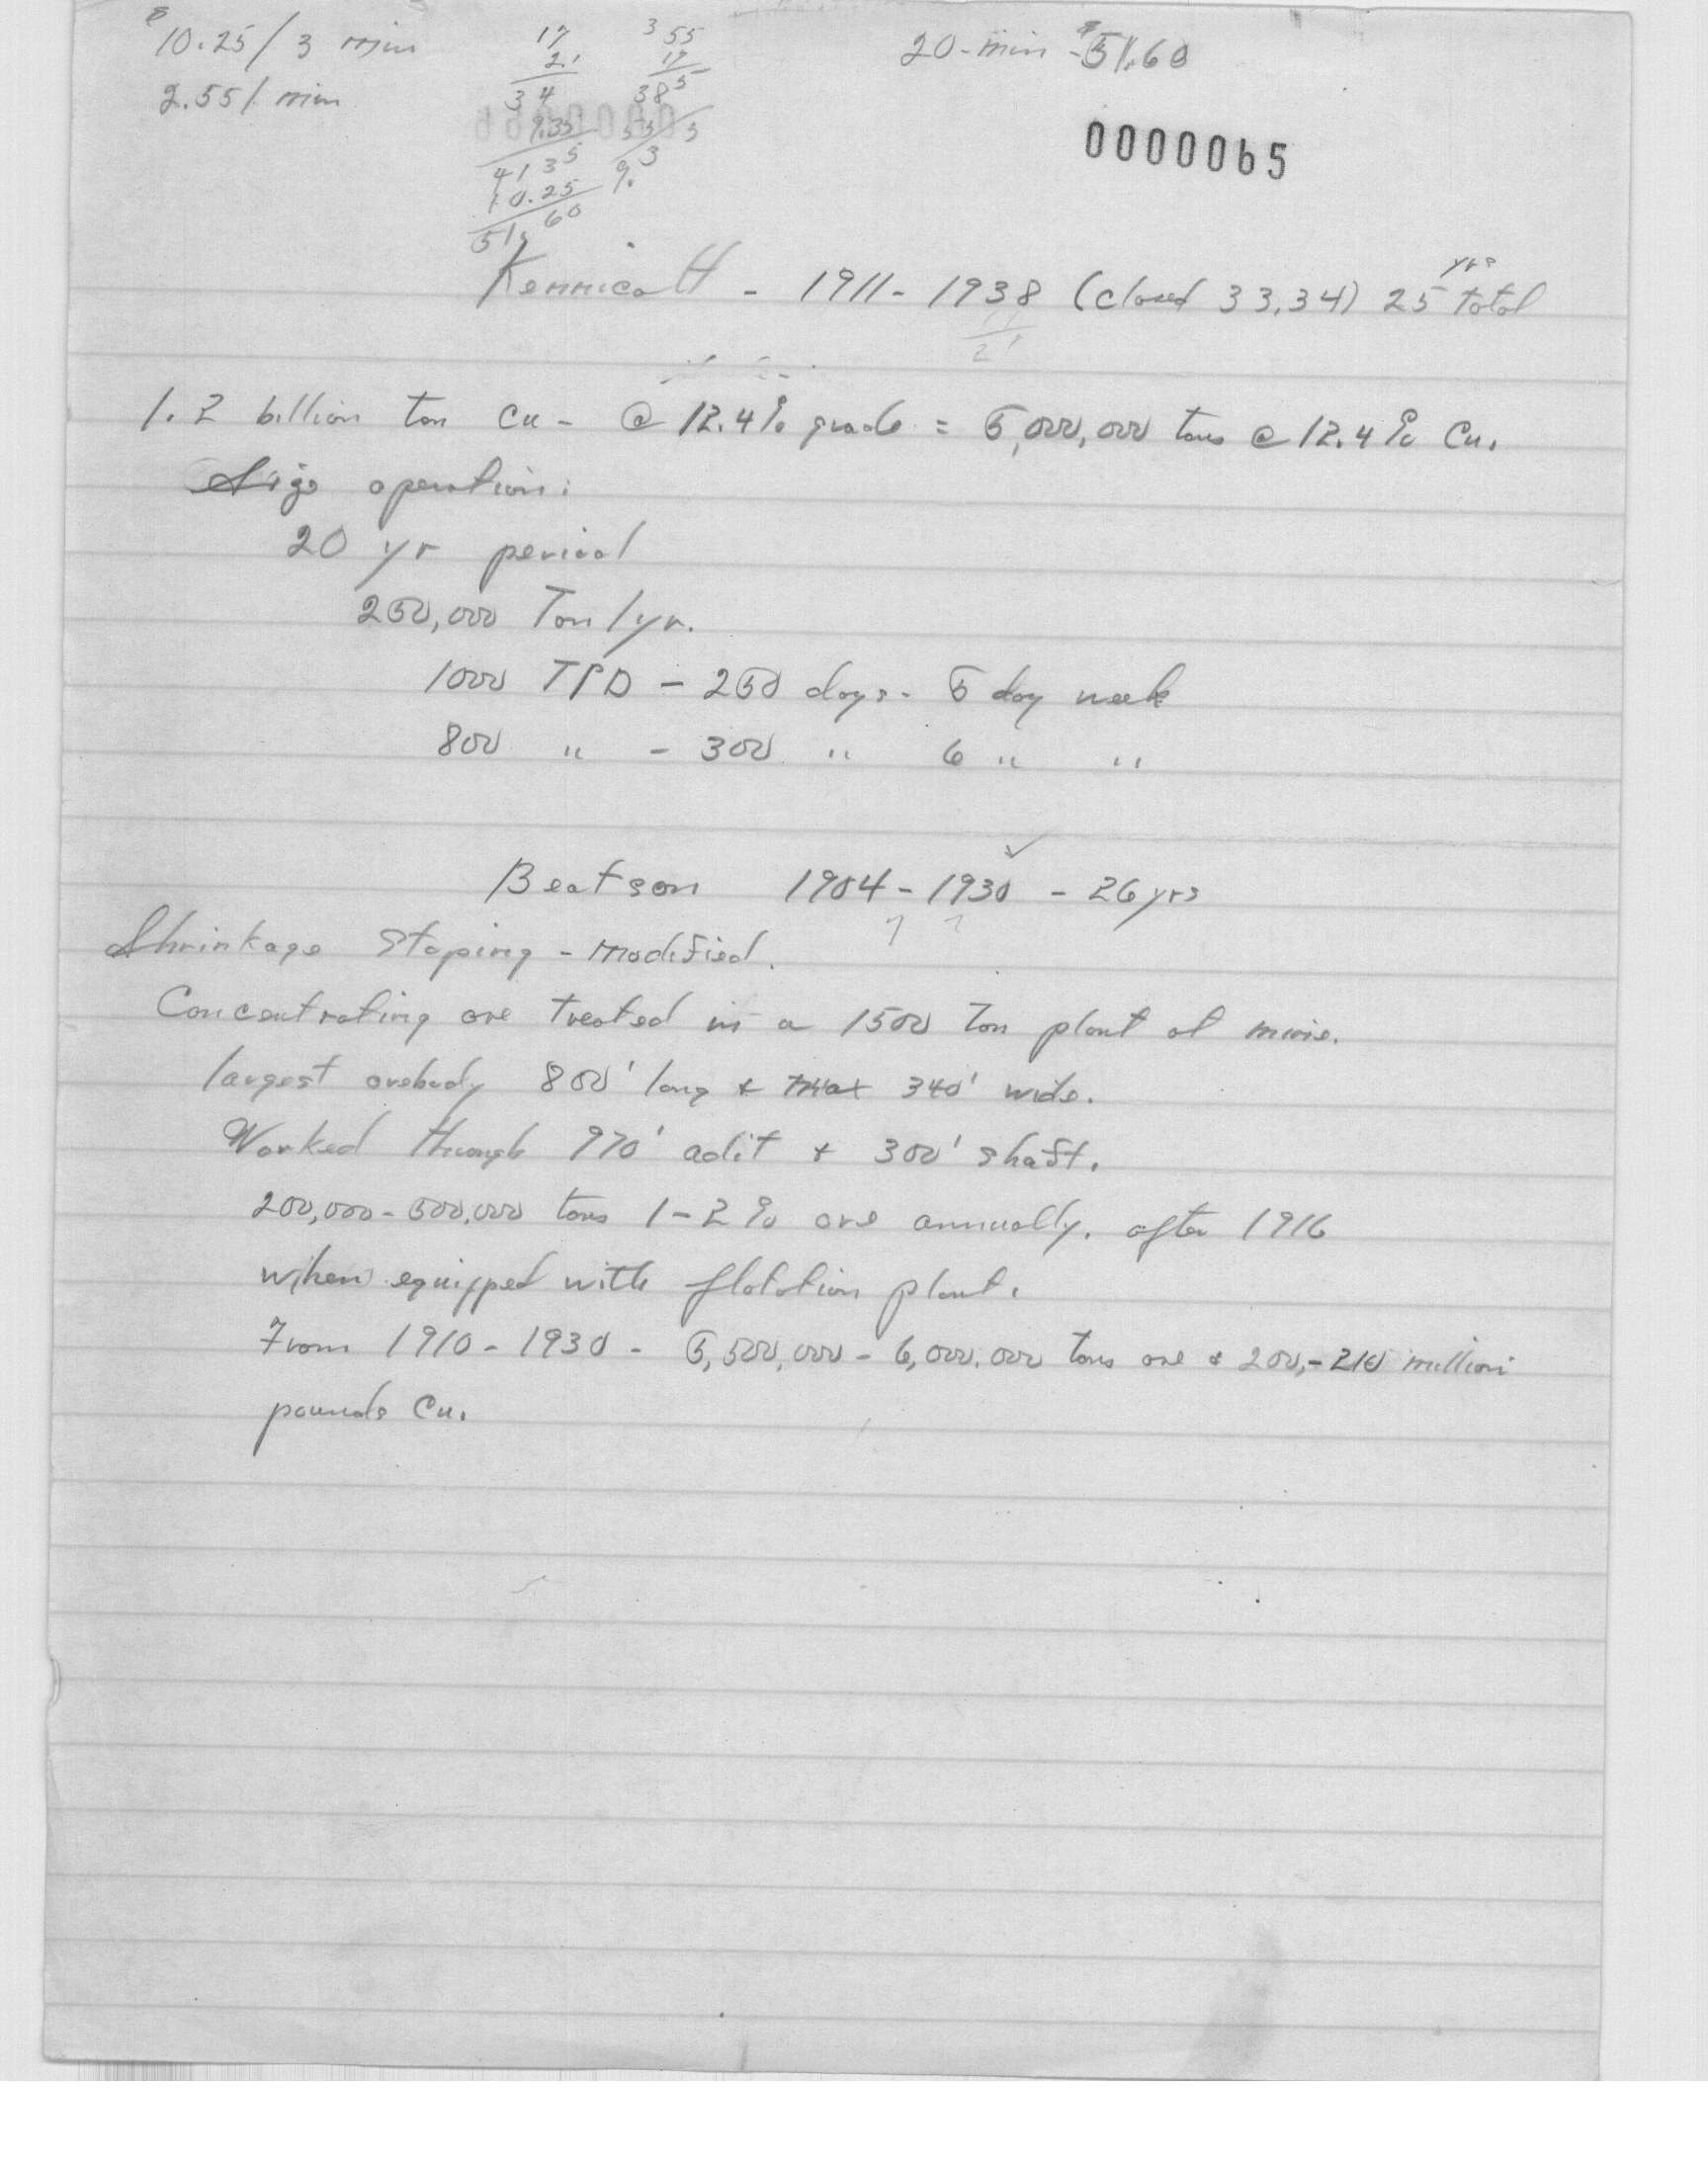 $10.25/3 min
2.55/min
17
2.
34
9.35
4135
10.25
51.60
3 55
17
385
20-min - $51.60
0000065
Kennicott - 1911-1938 (closed 33,34) 25 yrs total
21
1.2 billion ton Cu - @ 12.4% grade = 5,000,000 tons @ 12.4% Cu.
Size operation:
20 yr period
250,000 Ton/yr.
1000 TPD - 250 days - 5 day week
800 " - 300 " 6 " "
Beatson 1904-1930 - 26 yrs
? ?
Shrinkage Stoping - modified.
Concentrating ore treated in a 1500 Ton plant at mine.
largest orebody 800' long + max 340' wide.
Worked through 970' adit + 300' shaft.
200,000-500,000 tons 1-2% ore annually. after 1916
when equipped with flotation plant.
From 1910-1930 - 5,500,000-6,000,000 tons ore & 200,-210 million
pounds Cu.